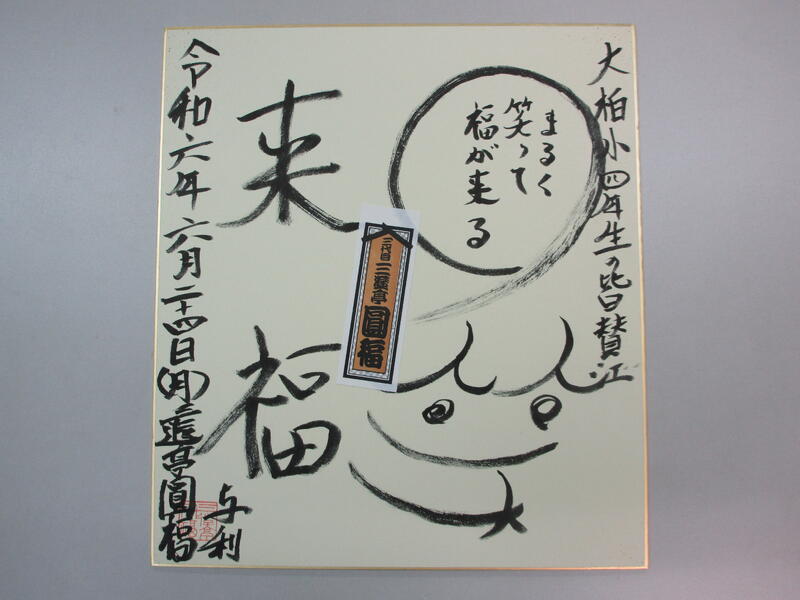 大柏小四年生の皆賛江
まるく
笑って
福が来る
来福
三代目
三遊亭
圓福
令和六年六月二十四日(月)三遊亭圓福
与利